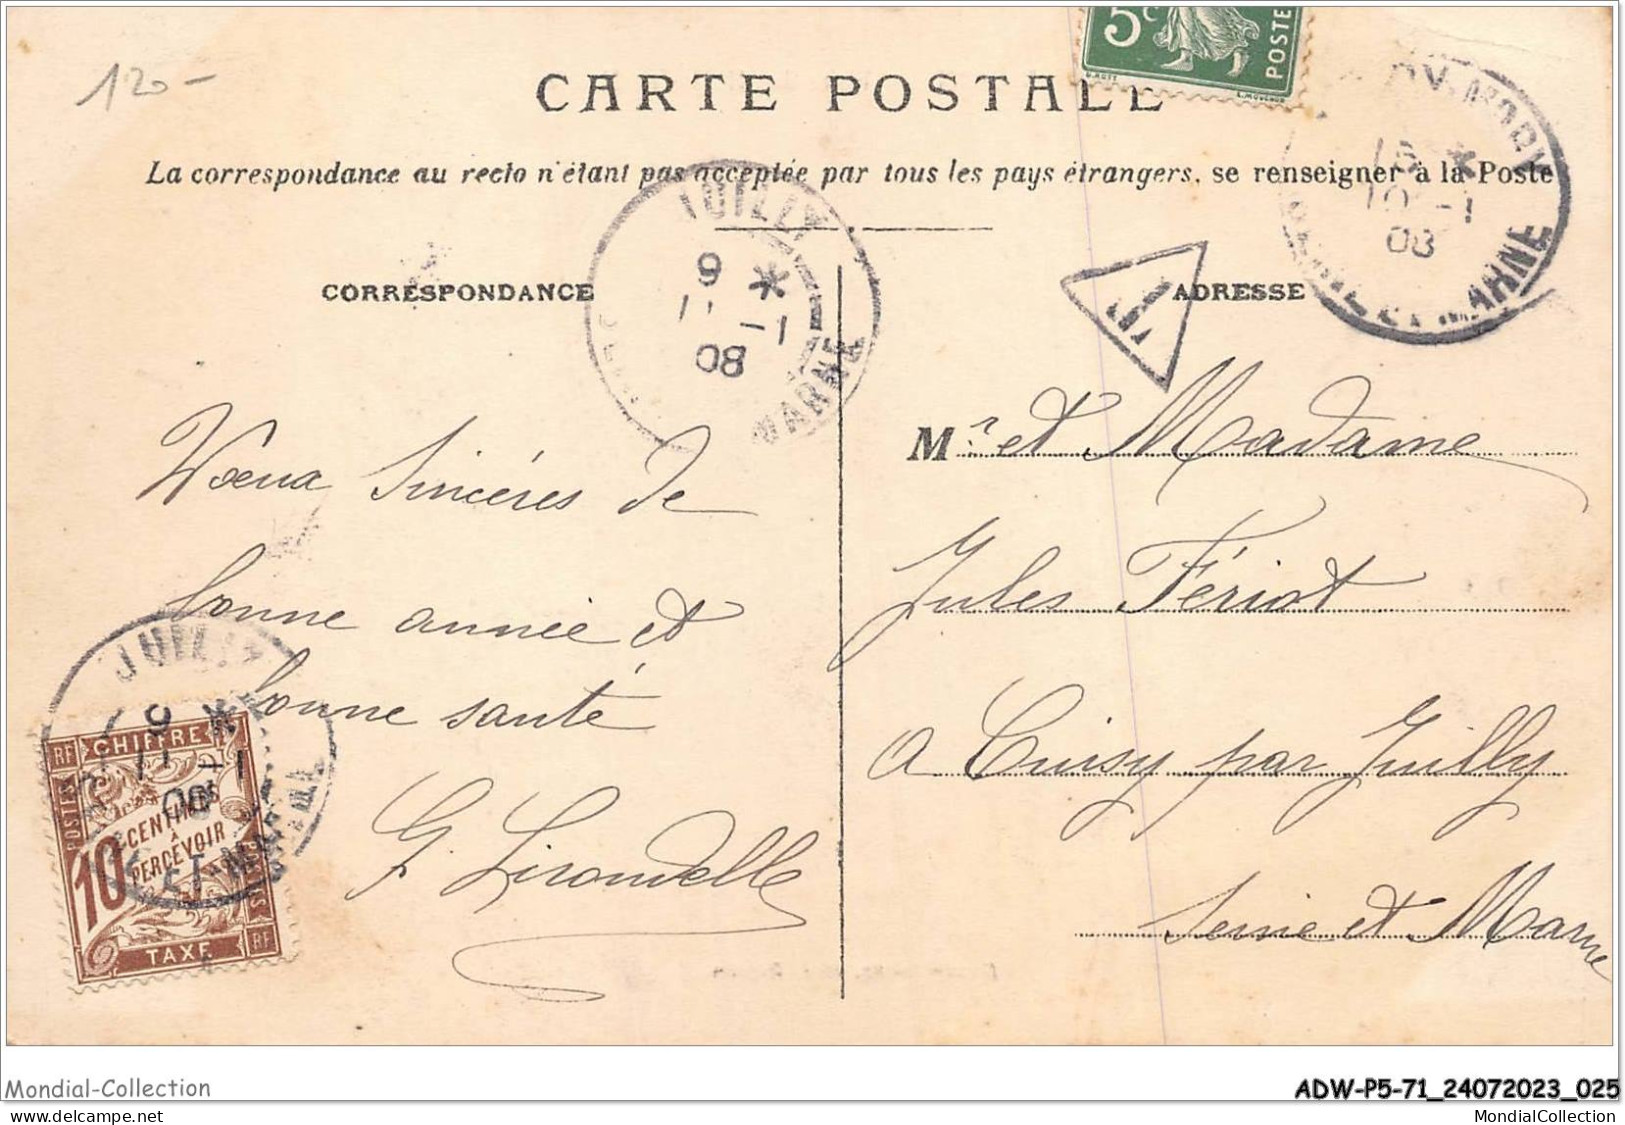 120-
5c
POSTE
CARTE POSTALE
La correspondance au recto n'étant pas acceptée par tous les pays étrangers, se renseigner à la Poste
JUILLY
9 *
11 -1
08
MARNE
10 -1
08
MARNE
CORRESPONDANCE
T
ADRESSE
Mr et Madame
Jules Fériot
a Cuisy par Juilly
Seine et Marne
Voeux Sincères de
bonne année et
bonne santé
G. Lirondelle
JUILLY
9 *
11 -1
08
ET-MARNE
RF CHIFFRE
POSTES
10 CENTIMES
A
PERCEVOIR
POSTES
TAXE RF
Mondial-Collection
ADW-P5-71_24072023_025
www.mondial-collection.com
MondialCollection